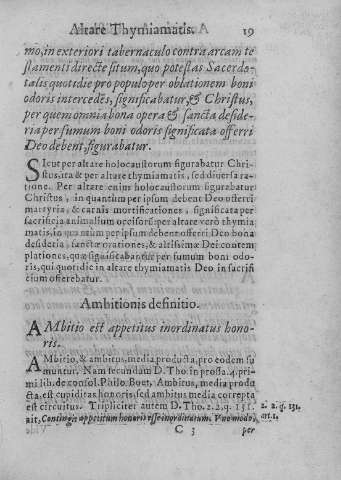 Altare Thymiamatis. 19
mo, in exteriori tabernaculo contra arcam te
stamenti directe situm, quo potestas Sacerdo-
talis quotidie pro populo per oblationem boni
odoris intercedẽs, significabatur, & Christus,
per quem omnia bona opera & sancta deside-
ria per fumum boni odoris significata offerri
Deo debent, figurabatur.
Sicut per altare holocaustorum figurabatur Chri-
stus, ita & per altare thymiamatis, sed diversa ra-
tione. Per altare enim holocaustorum figurabatur
Christus, in quantum per ipsum debent Deo offerri
martyria, & carnis mortificationes, significata per
sacrificia animalium occisorũ: per altare verò thymia
matis, in quantum per ipsum debent offerri Deo bona
desideria, sanctæ orationes, & altissimæ Dei contem
plationes, quæ significabantur per fumum boni odo-
ris, qui quotidie in altare thymiamatis Deo in sacrifi
cium offerebatur.
Ambitionis definitio.
AMbitio est appetitus inordinatus hono-
ris.
AMbitio, & ambitus, media producta, pro eodem su
muntur. Nam secundum D. Tho. in prosa. 4. pri-
mi lib. de consol. Philo. Boet, Ambitus, media produ
cta, est cupiditas honoris, sed ambitus media correpta
est circuitus. Tripliciter autem D. Tho. 2. 2. q. 131. 2. 2. q. 131.
ait, Contingit appetitum honoris esse inordinatum. Vno modo, art. 1.
C 3 per